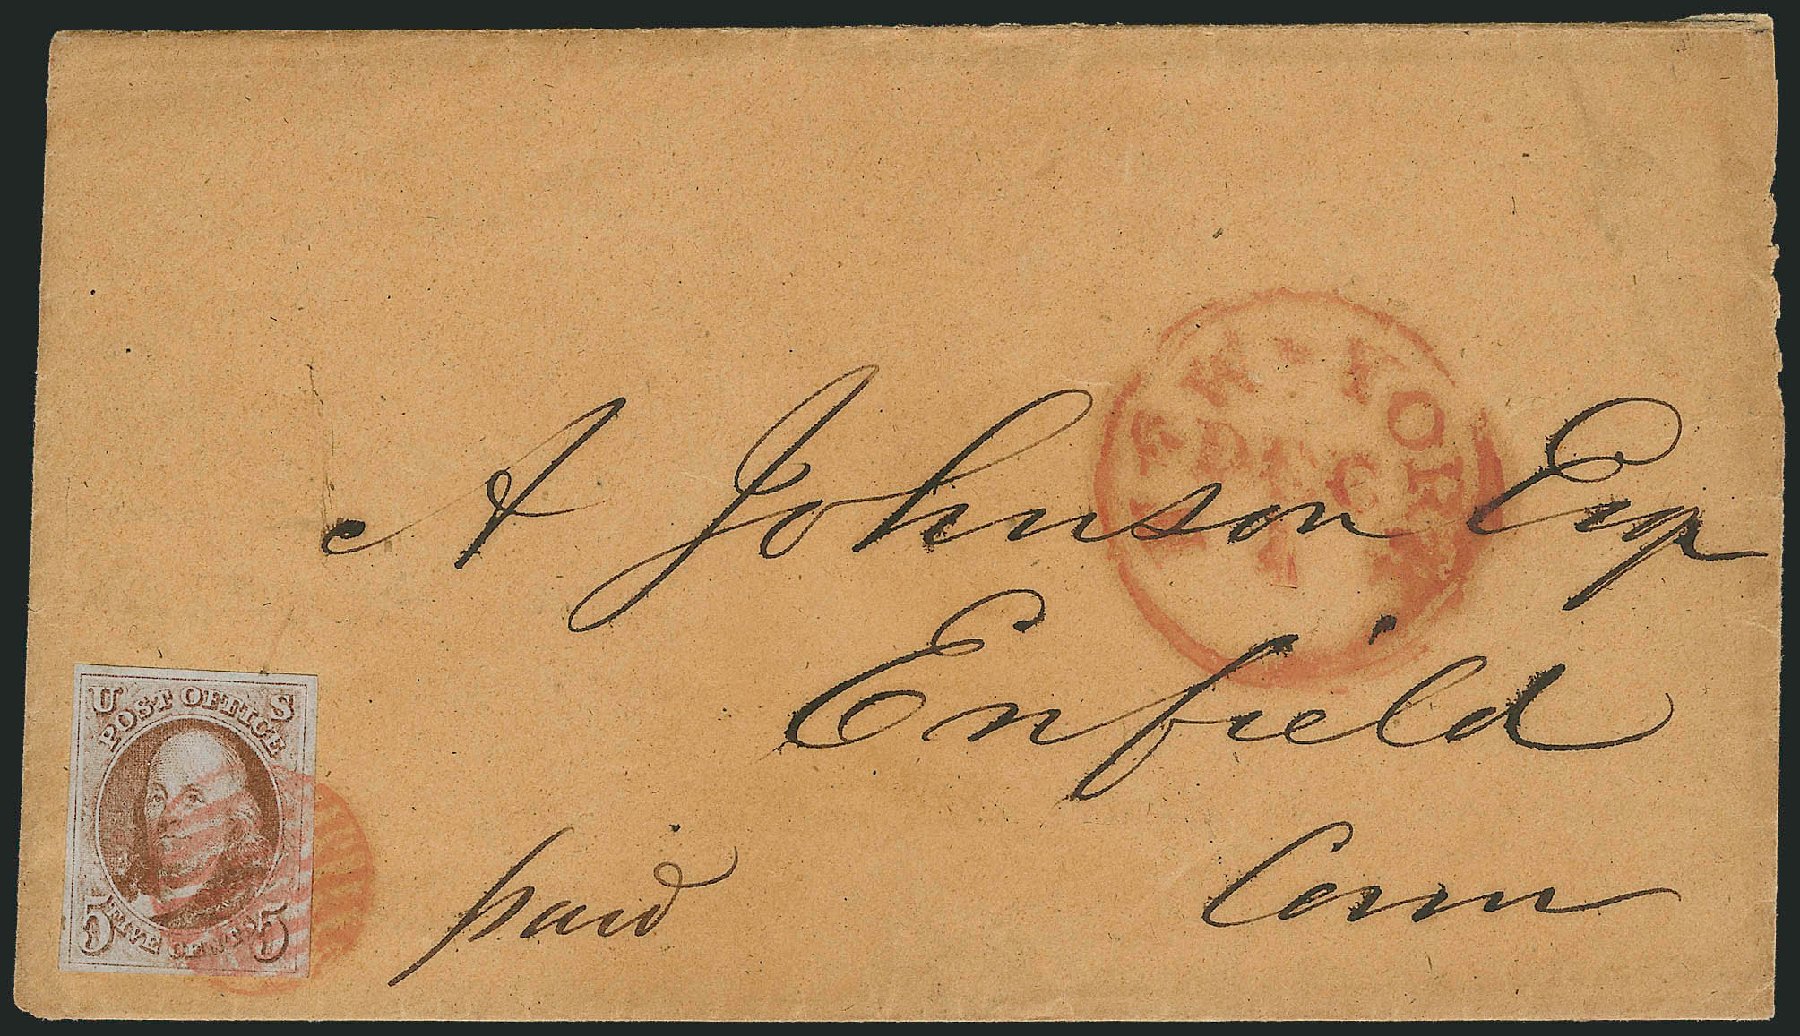 NEW-YORK
DEC
4
A Johnson Esq
Enfield
Conn
paid
U S
POST OFFICE
FIVE CENTS
5 5